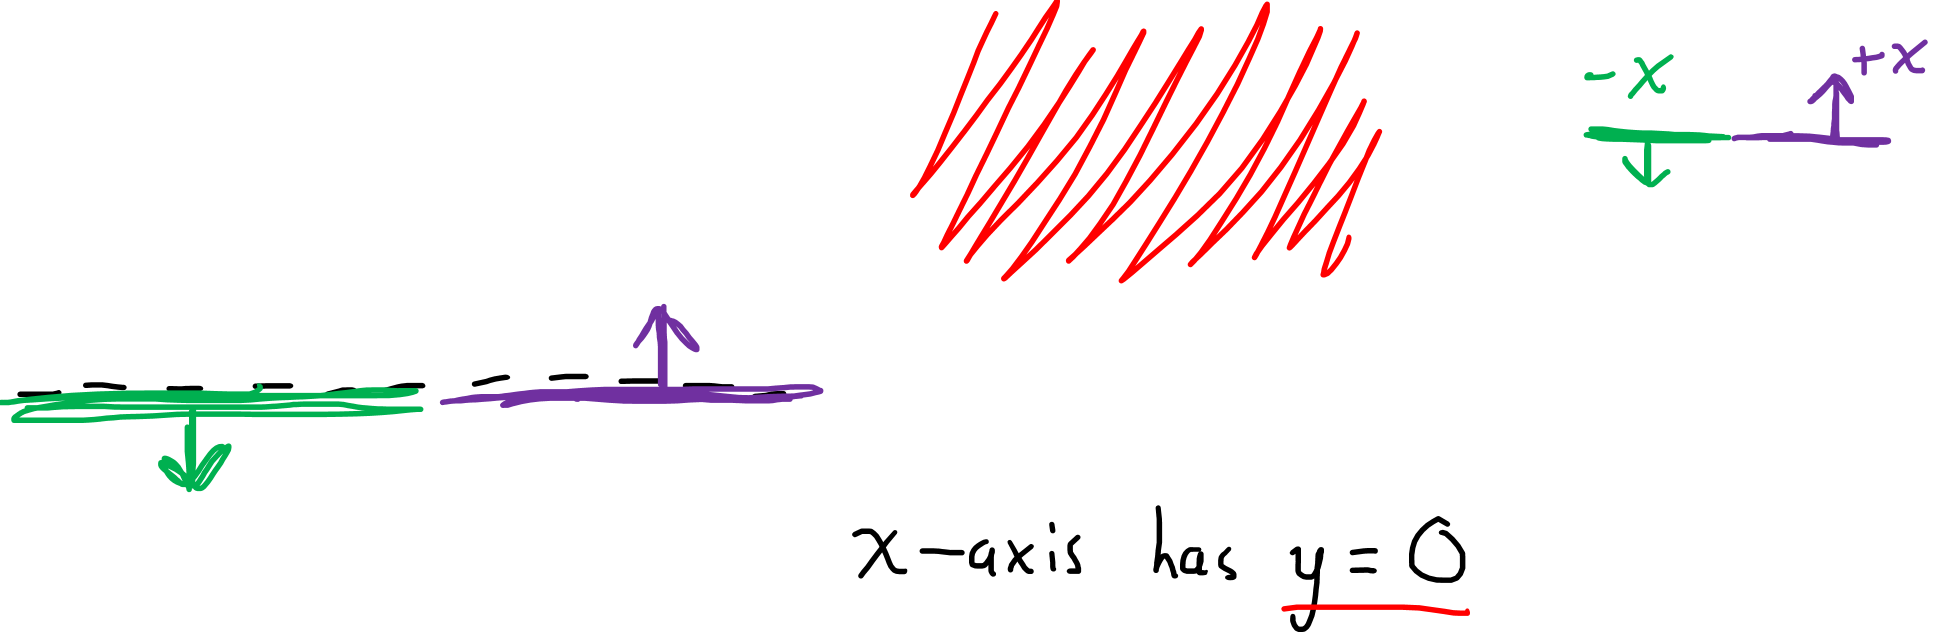 -x
+x
x-axis has y = 0